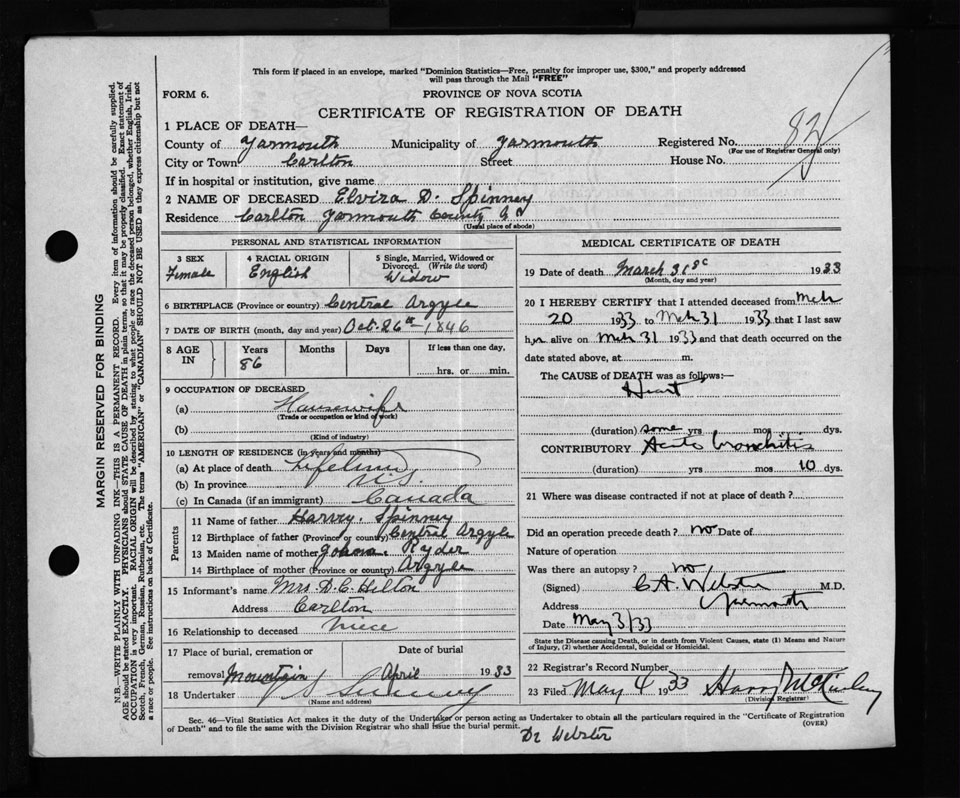 This form if placed in an envelope, marked "Dominion Statistics—Free, penalty for improper use, $300," and properly addressed
will pass through the Mail "FREE"
FORM 6. PROVINCE OF NOVA SCOTIA
CERTIFICATE OF REGISTRATION OF DEATH
1 PLACE OF DEATH—
County of Yarmouth Municipality of Yarmouth Registered No.
(For use of Registrar General only)
City or Town Carlton Street House No.
If in hospital or institution, give name
2 NAME OF DECEASED Elvira D. Spinney
Residence Carlton Yarmouth County
(Usual place of abode)
PERSONAL AND STATISTICAL INFORMATION
3 SEX 4 RACIAL ORIGIN 5 Single, Married, Widowed or
Divorced. (Write the word)
Female English Widow
6 BIRTHPLACE (Province or country) Central Argyle
7 DATE OF BIRTH (month, day and year) Oct. 26th 1846
8 AGE IN Years Months Days If less than one day,
86 hrs. or min.
9 OCCUPATION OF DECEASED
(a) Housewife
(Trade or occupation or kind of work)
(b)
(Kind of industry)
10 LENGTH OF RESIDENCE (in years and months)
(a) At place of death Lifetime
(b) In province N.S.
(c) In Canada (if an immigrant) Canada
Parents
11 Name of father Harvey Spinney
12 Birthplace of father (Province or country) Central Argyle
13 Maiden name of mother Ryder
14 Birthplace of mother (Province or country) Argyle
15 Informant's name Mrs. D. C. Hilton
Address Carlton
16 Relationship to deceased niece
17 Place of burial, cremation or Date of burial
removal Mountain April 1933
18 Undertaker
(Name and address)
MEDICAL CERTIFICATE OF DEATH
19 Date of death March 31st 1933
(Month, day and year)
20 I HEREBY CERTIFY that I attended deceased from Mch
20 1933 to Mch 31 1933 that I last saw
her alive on Mch 31 1933 and that death occurred on the
date stated above, at m.
The CAUSE of DEATH was as follows:—
Heart
(duration) some yrs mos dys.
CONTRIBUTORY Acute bronchitis
(duration) yrs mos 10 dys.
21 Where was disease contracted if not at place of death?
Did an operation precede death? no Date of
Nature of operation
Was there an autopsy? no
(Signed) C. A. Webster M.D.
Address Yarmouth
Date May 3/33
State the Disease causing Death, or in death from Violent Causes, state (1) Means and Nature
of Injury, (2) whether Accidental, Suicidal or Homicidal.
22 Registrar's Record Number
23 Filed May 4 1933 Harry McKinley
(Division Registrar)
Sec. 46—Vital Statistics Act makes it the duty of the Undertaker or person acting as Undertaker to obtain all the particulars required in the "Certificate of Registration
of Death" and to file the same with the Division Registrar who shall issue the burial permit. (OVER)
Dr Webster
MARGIN RESERVED FOR BINDING
N.B.—WRITE PLAINLY WITH UNFADING INK—THIS IS A PERMANENT RECORD. Every item of information should be carefully supplied.
AGE should be stated EXACTLY. PHYSICIANS should STATE CAUSE OF DEATH in plain terms, so that it may be properly classified. Exact statement of
OCCUPATION is very important. RACIAL ORIGIN will be described by stating to what people or race the deceased person belonged, whether English, Irish,
Scotch, French, German, Russian, Ruthenian, etc. The terms "AMERICAN" or "CANADIAN" SHOULD NOT BE USED as they express citizenship but not
a race or people. See instructions on back of Certificate.